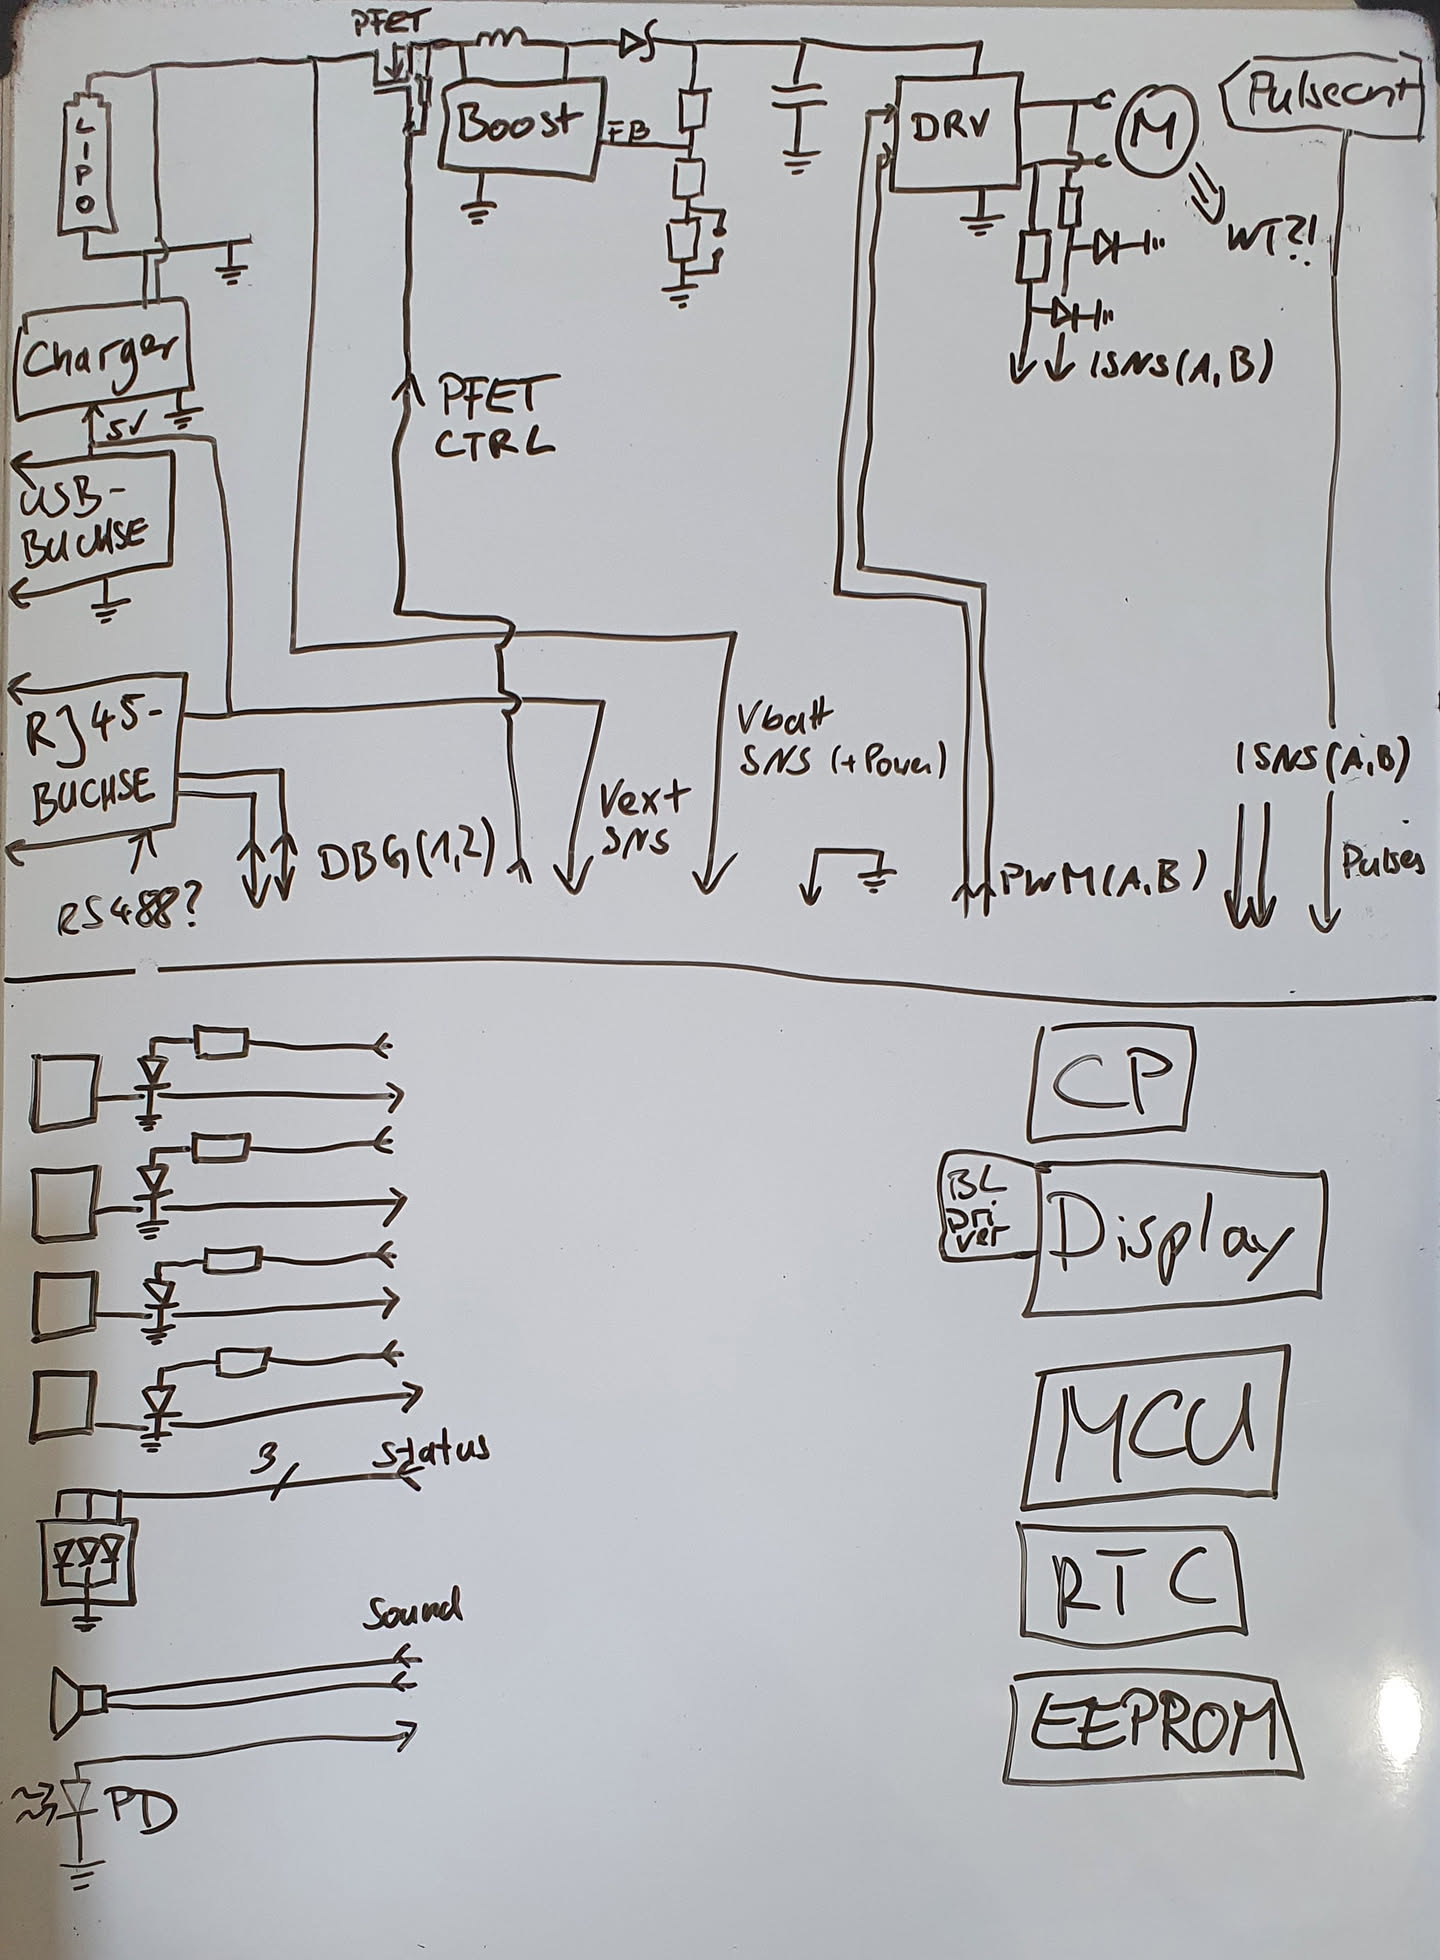 PFET
LIPO
Boost
FB
DRV
M
Pulsecnt
WT?!
Charger
ISNS(A,B)
PFET
CTRL
5V
USB-
BUCHSE
RJ45-
BUCHSE
Vbatt
SNS (+Power)
ISNS(A,B)
Vext
SNS
DBG(1,2)
PWM(A,B)
Pulses
RS488?
CP
BL
Dri
ver
Display
MCU
3
Status
RTC
Sound
EEPROM
PD